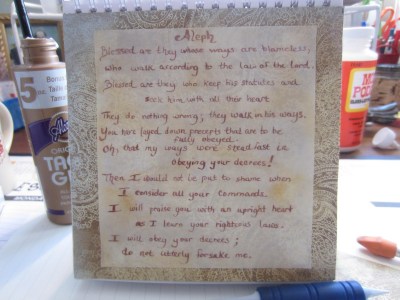 Aleph
Blessed are they whose ways are blameless,
who walk according to the law of the lord.
Blessed are they who keep his statutes and
seek him with all their heart
They do nothing wrong; they walk in his ways.
You have layed down precepts that are to be
fully obeyed.
Oh, that my ways were steadfast in
obeying your decrees!
Then I would not be put to shame when
I consider all your commands.
I will praise you with an upright heart
as I learn your righteous laws.
I will obey your decrees;
do not utterly forsake me.
5
TA
MOD
PO